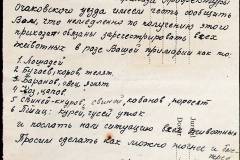 Очаковского уезда имеем честь сообщить
Вам, что немедленно по получению этого
приказа обязаны зарегистрировать всех
животных в роде Вашей примарии как то:
1. Лошадей
2. Бугаев, коров, телят
3. Баранов, овец, ягнят
4. Коз, цапов
5. Свиней - кнуров, свиной, кабанов, поросят
6. Птиц: курей, гусей уток
и послать нам ситуацию всех животных
Просим сделать как можно точнее и